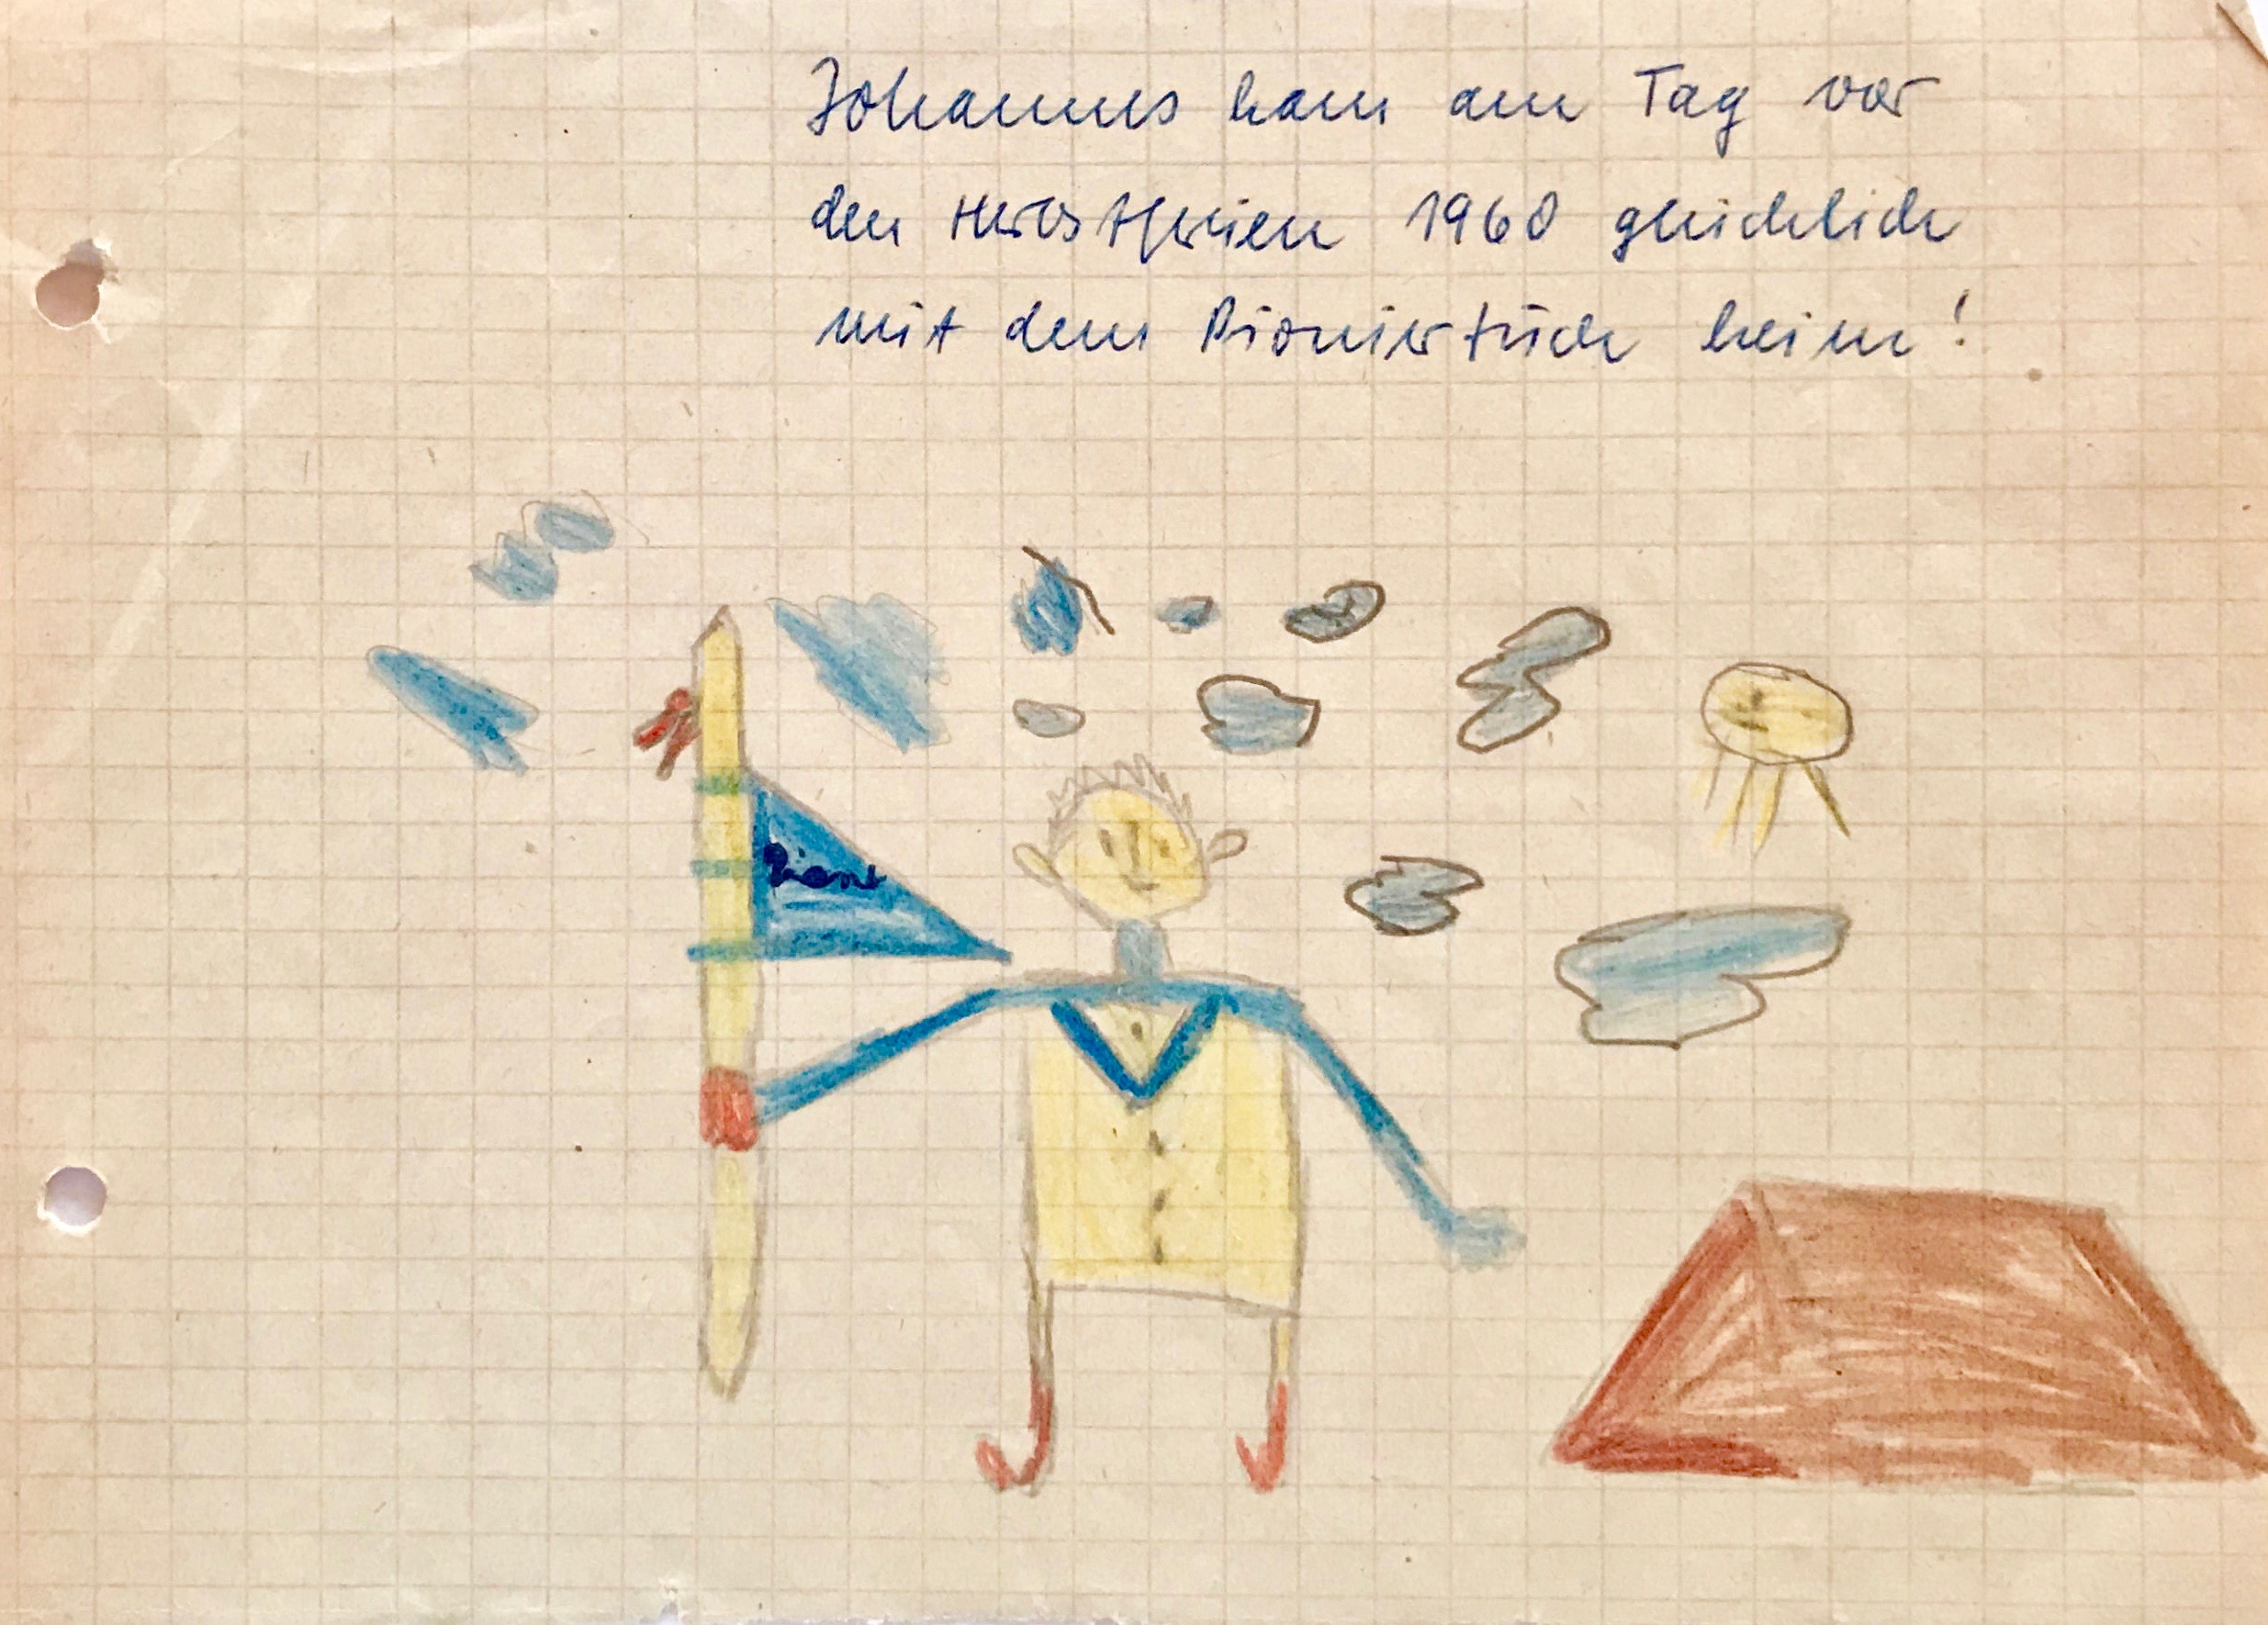 Johannes kam am Tag vor
den Herbstferien 1960 glücklich
mit dem Pioniertuch heim!